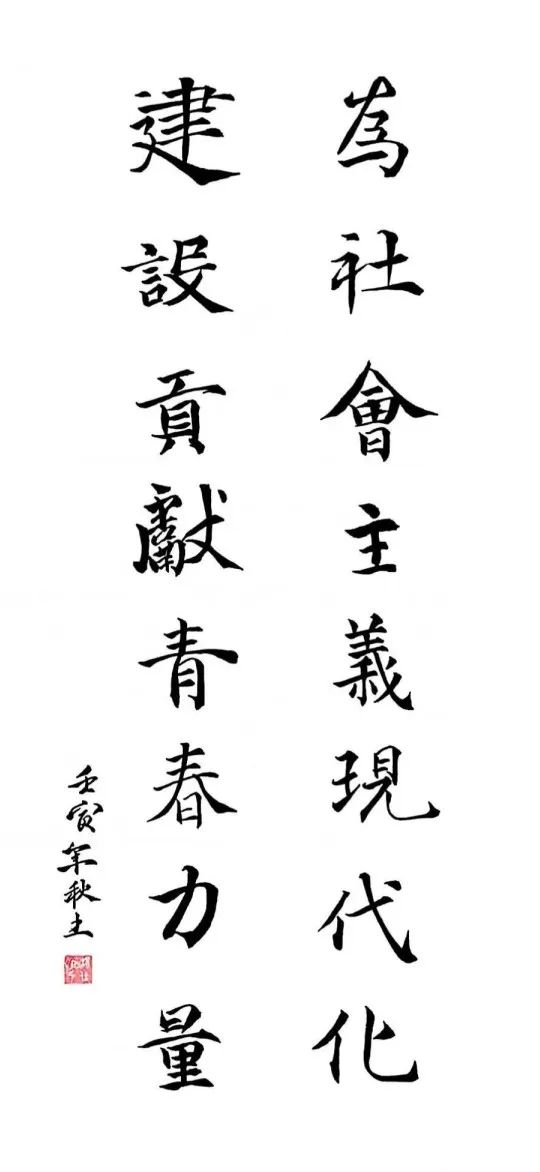 為社會主義現代化
建設貢獻青春力量
壬寅年秋土